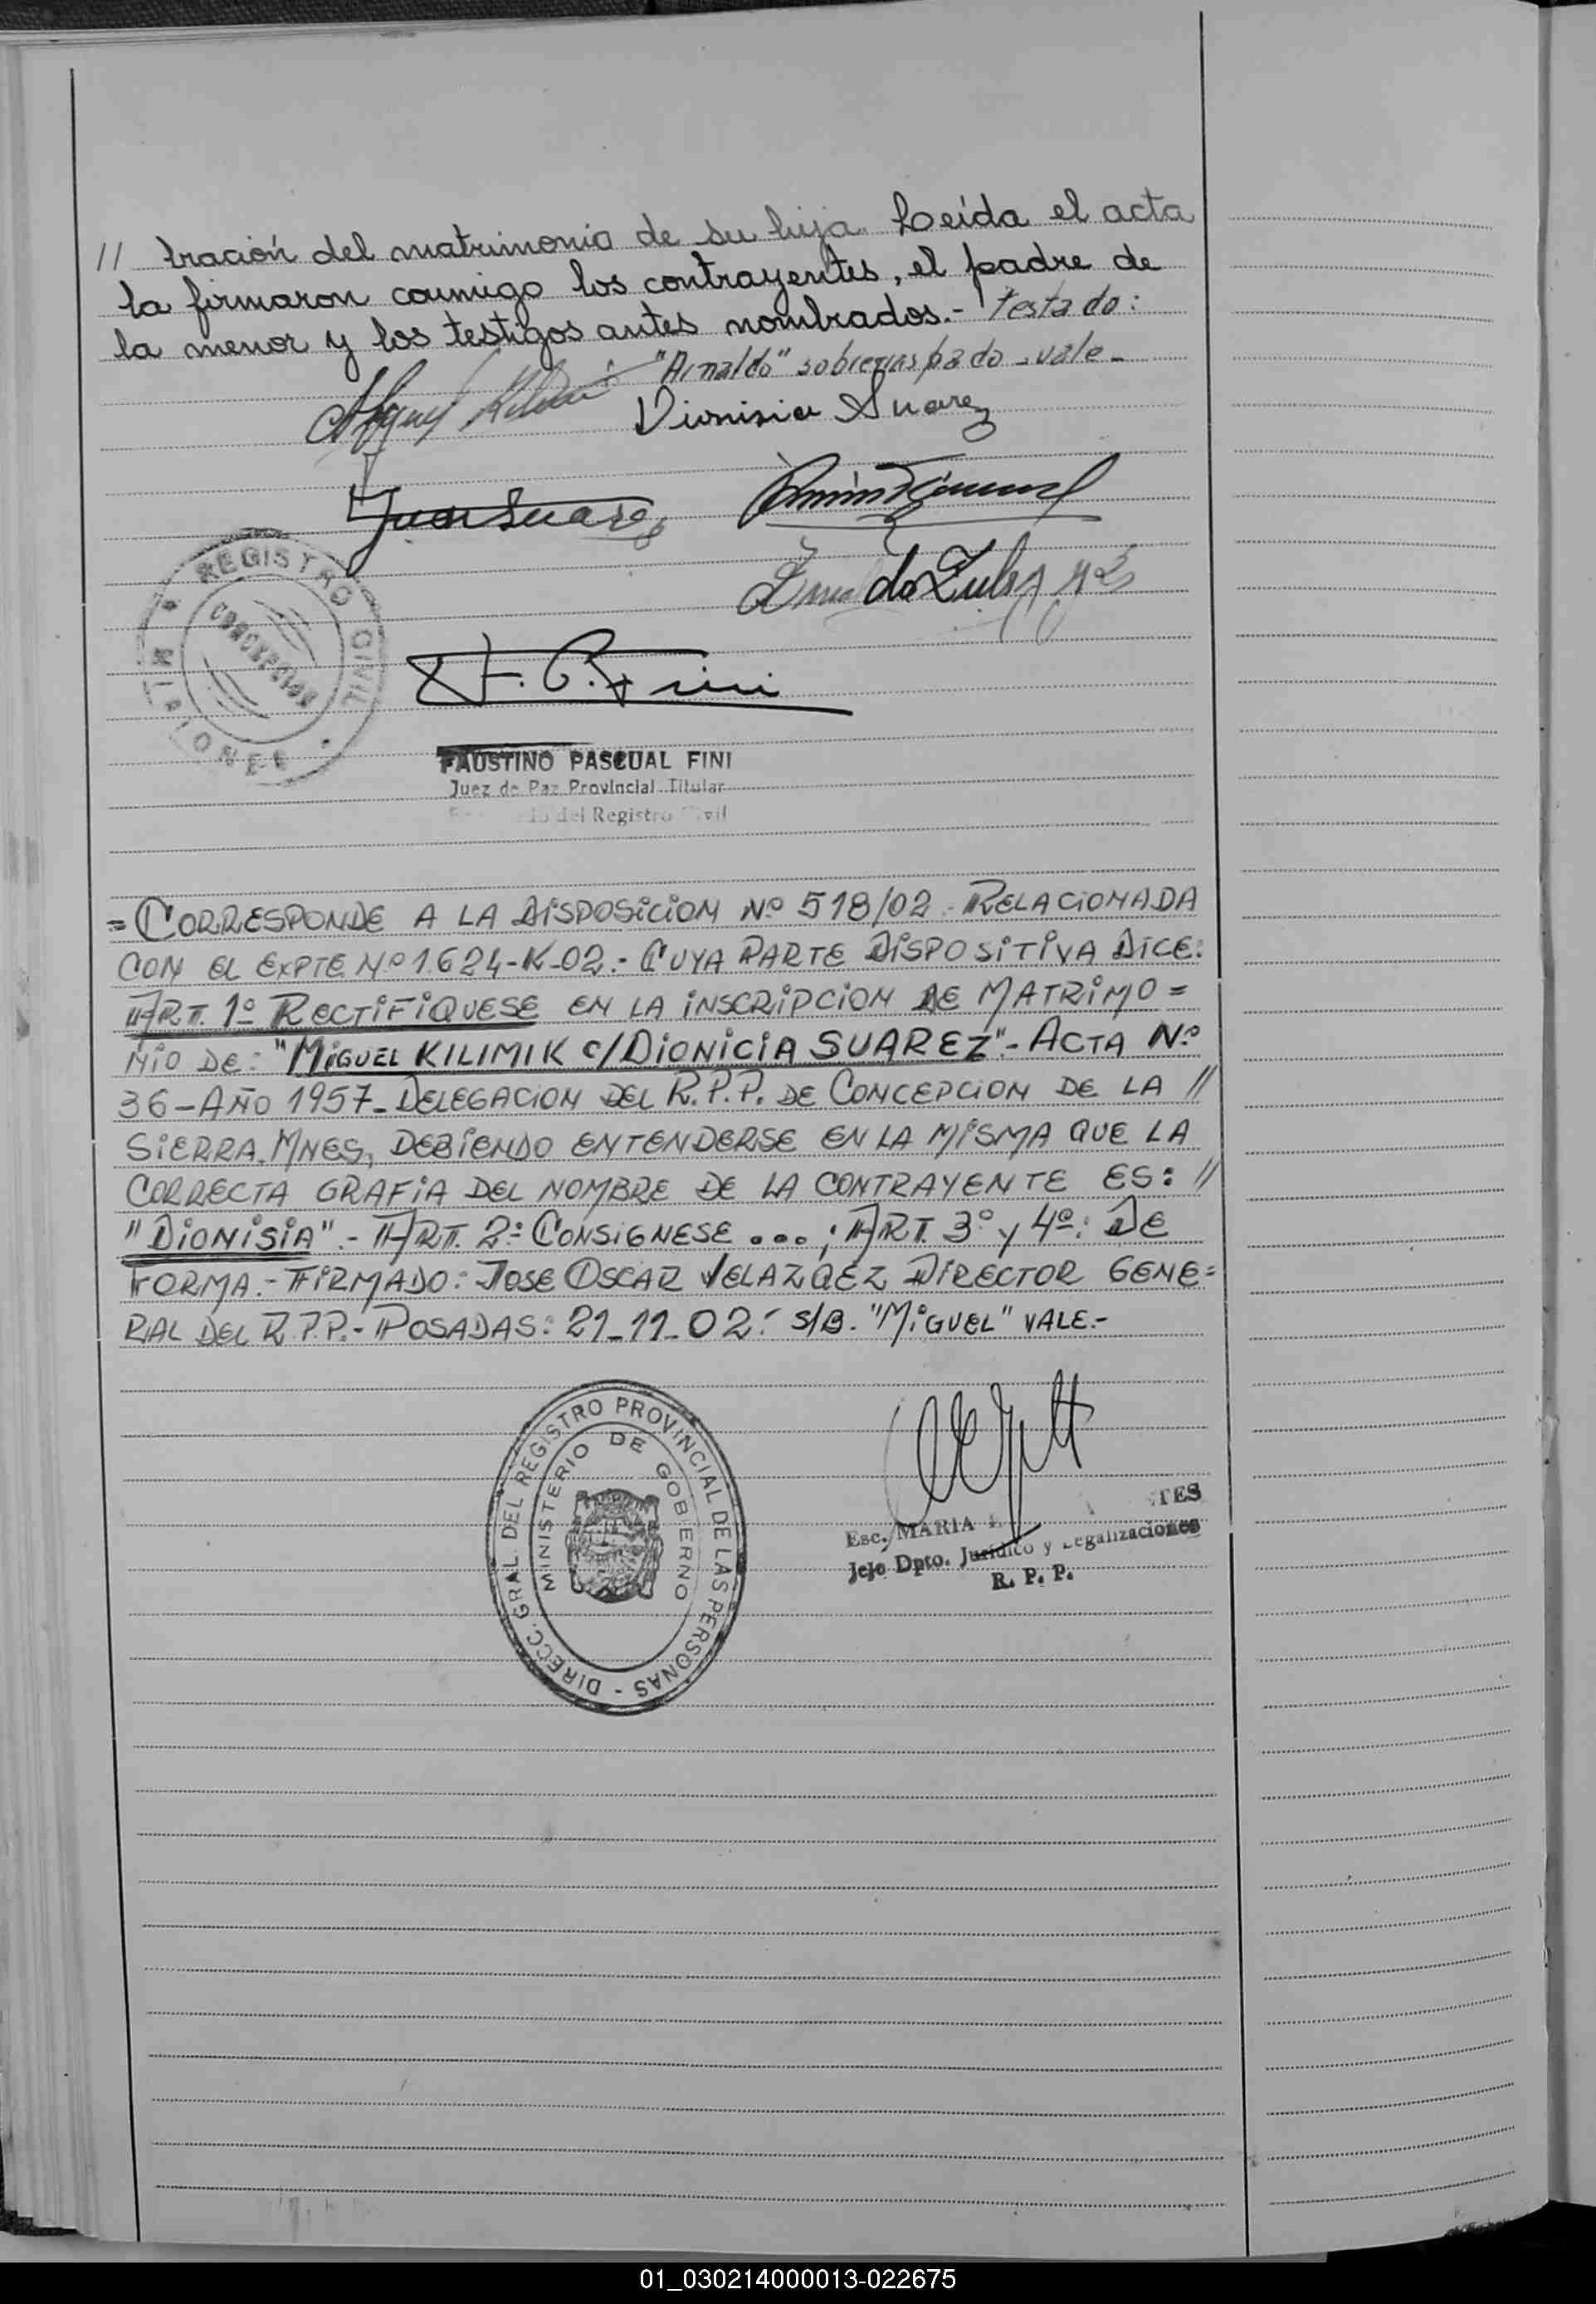 // tración del matrimonio de su hija. Leída el acta
la firmaron conmigo los contrayentes, el padre de
la menor y los testigos antes nombrados.- Testado:
"Arnaldo" sobreraspado - vale -
Miguel Dionisia Suarez
Juan Suarez
REGISTRO CIVIL
CONCEPCION
MISIONES
F. P. Fini
FAUSTINO PASCUAL FINI
Juez de Paz Provincial Titular
del Registro Civil
= CORRESPONDE A LA DISPOSICION Nº 518/02. RELACIONADA
CON EL EXPTE Nº 1624-K-02.- CUYA PARTE DISPOSITIVA DICE:
ART. 1º RECTIFIQUESE EN LA INSCRIPCION DE MATRIMO=
NIO DE: "MIGUEL KILIMIK c/DIONICIA SUAREZ".- ACTA Nº
36-AÑO 1957-DELEGACION DEL R.P.P. DE CONCEPCION DE LA //
SIERRA.MNES, DEBIENDO ENTENDERSE EN LA MISMA QUE LA
CORRECTA GRAFIA DEL NOMBRE DE LA CONTRAYENTE ES: //
"DIONISIA".- ART. 2º: CONSIGNESE ...; ART. 3º y 4º: DE
FORMA.- FIRMADO: JOSE OSCAR VELAZQEZ DIRECTOR GENE=
RAL DEL R.P.P.- POSADAS: 21-11-02: S/B. "MIGUEL" VALE.-
DIRECC. GRAL. DEL REGISTRO PROVINCIAL DE LAS PERSONAS -
MINISTERIO DE GOBIERNO
Esc. MARIA
Jefe Dpto. Jurídico y Legalizaciones
R. P. P.
01_030214000013-022675